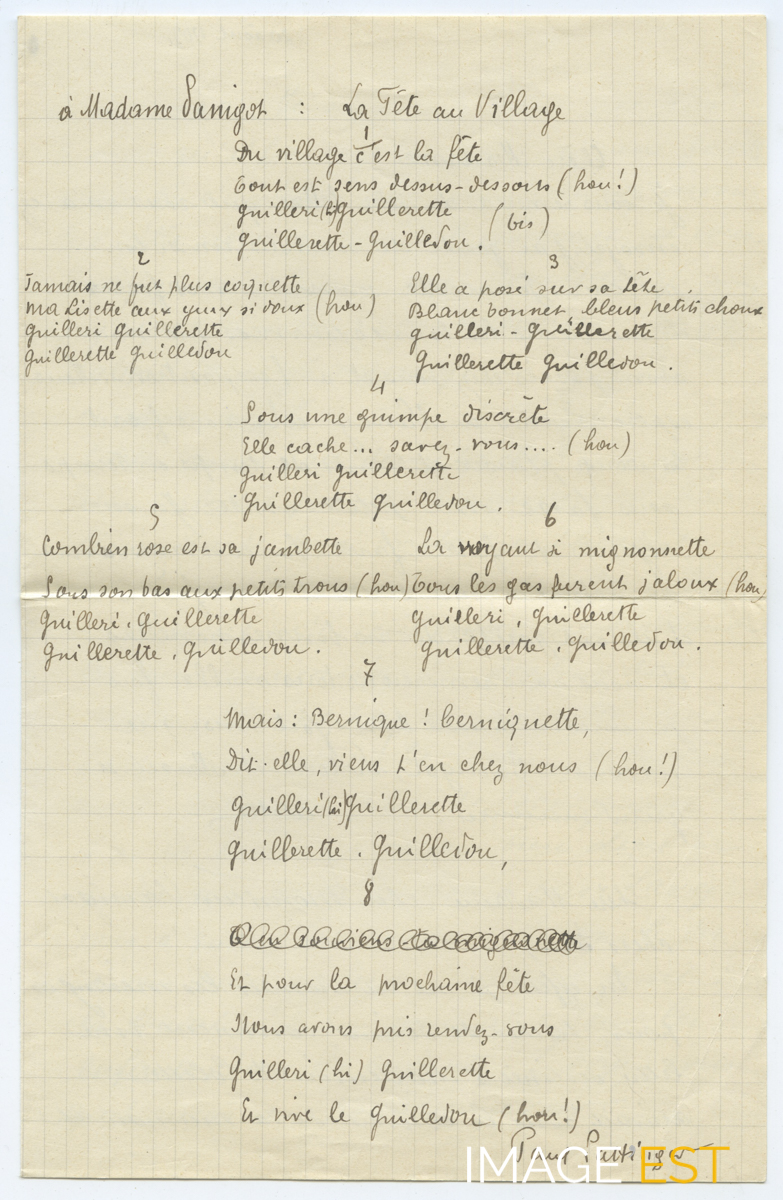 à Madame Sanigot : La Fête au Village
1
Du village c'est la fête
Tout est sens dessus-dessous (hou!)
Guilleri (hi) Guillerette
Guillerette - Guilledou. (bis)
2
Jamais ne fut plus coquette
Ma Lisette aux yeux si doux (hou)
Guilleri Guillerette
Guillerette Guilledou
3
Elle a posé sur sa tête
Blanc bonnet, bleus petits choux
Guilleri - Guillerette
Guillerette Guilledou.
4
Sous une guimpe discrète
Elle cache... savez-vous.... (hou)
Guilleri Guillerette
Guillerette Guilledou.
5
Combien rose est sa jambette
Sous son bas aux petits trous (hou)
Guilleri. Guillerette
Guillerette. Guilledou.
6
La voyant si mignonnette
Tous les gas furent jaloux (hou)
Guilleri, Guillerette
Guillerette. Guilledou.
7
Mais : Bernique ! berniquette,
Dit-elle, viens t'en chez nous (hou!)
Guilleri (hi) Guillerette
Guillerette. Guilledou,
8
Et pour la prochaine fête
Nous avons pris rendez-vous
Guilleri (hi) Guillerette
Et vive le Guilledou (hou!)
Paul
IMAGE EST